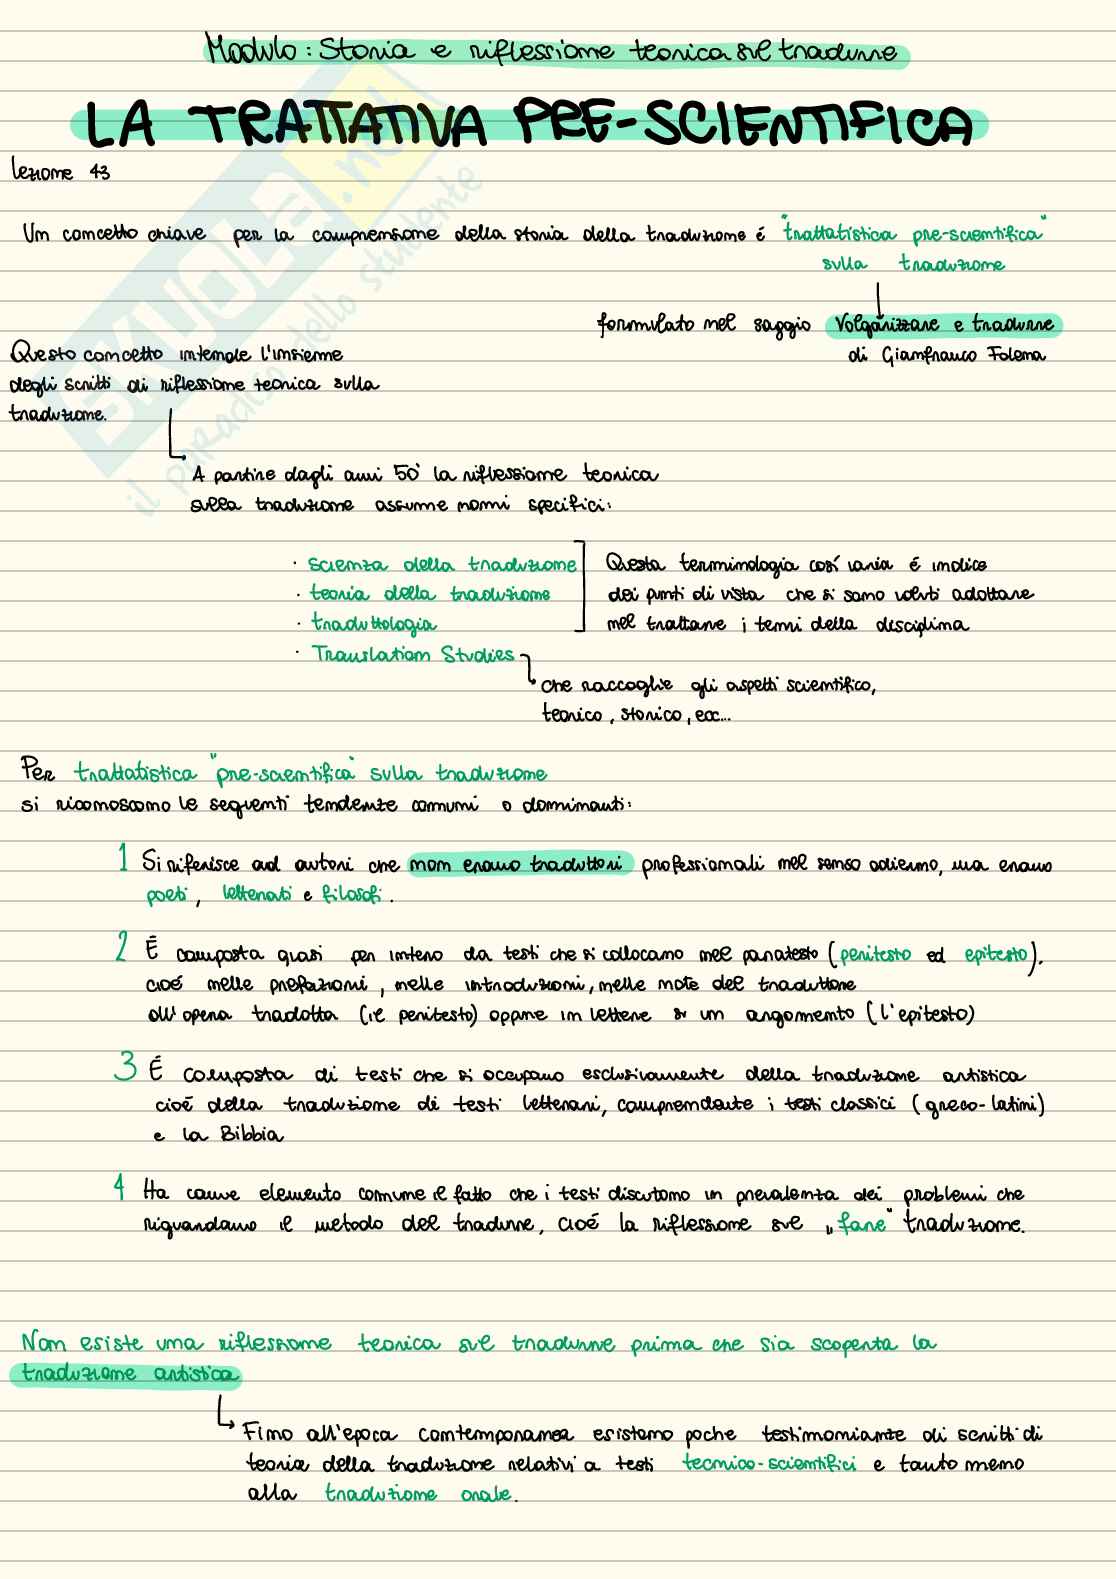 Modulo: Storia e riflessione teorica sul tradurre
LA TRATTATIVA PRE-SCIENTIFICA
lezione 43
Un concetto chiave per la comprensione della storia della traduzione é "trattatistica pre-scientifica"
sulla traduzione
formulato nel saggio Volgarizzare e tradurre
di Gianfranco Folena
Questo concetto intende l'insieme
degli scritti di riflessione teorica sulla
traduzione.
A partire dagli anni 50' la riflessione teorica
sulla traduzione assume nomi specifici:
· scienza della traduzione
· teoria della traduzione
· traduttologia
· Translation Studies
Questa terminologia così varia é indice
dei punti di vista che si sono voluti adottare
nel trattare i temi della disciplina
che raccoglie gli aspetti scientifico,
teorico, storico, ecc...
Per trattatistica "pre-scientifica" sulla traduzione
si riconoscono le seguenti tendenze comuni o dominanti:
1 Si riferisce ad autori che non erano traduttori professionali nel senso odierno, ma erano
poeti, letterati e filosofi.
2 É composta quasi per intero da testi che si collocano nel paratesto (peritesto ed epitesto).
cioé nelle prefazioni, nelle introduzioni, nelle note del traduttore
all'opera tradotta (il peritesto) oppure in lettere su un argomento (l'epitesto)
3 É composta di testi che si occupano esclusivamente della traduzione artistica
cioé della traduzione di testi letterari, comprendente i testi classici (greco-latini)
e la Bibbia
4 Ha come elemento comune il fatto che i testi discutono in prevalenza dei problemi che
riguardano il metodo del tradurre, cioé la riflessione sul "fare" traduzione.
Non esiste una riflessione teorica sul tradurre prima che sia scoperta la
traduzione artistica
Fino all'epoca contemporanea esistono poche testimonianze di scritti di
teoria della traduzione relativi a testi tecnico-scientifici e tanto meno
alla traduzione orale.
SKUOLA.net
il paradiso dello studente